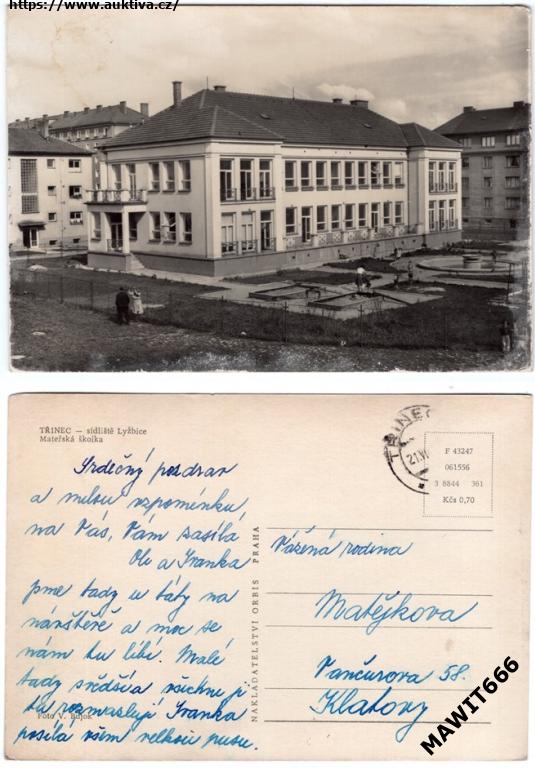 https://www.auktiva.cz/
TŘINEC — sídliště Lyžbice
Mateřská školka
Srdečný pozdrav
a milou vzpomínku
na Vás, Vám zasílá
Ola a Ivanka
jsme tady u táty na
návštěvě a moc se
nám tu líbí. Malé
tady svědčí a všichni ji
tu rozmazlují Ivanka
posílá všem velkou pusu.
Foto V. Bujok
NAKLADATELSTVÍ ORBIS PRAHA
TŘINEC
21.VI
F 43247
061556
3 8844 361
Kčs 0,70
Vážená rodina
Matějkova
Vančurova 58.
Klatovy
MAWIT666